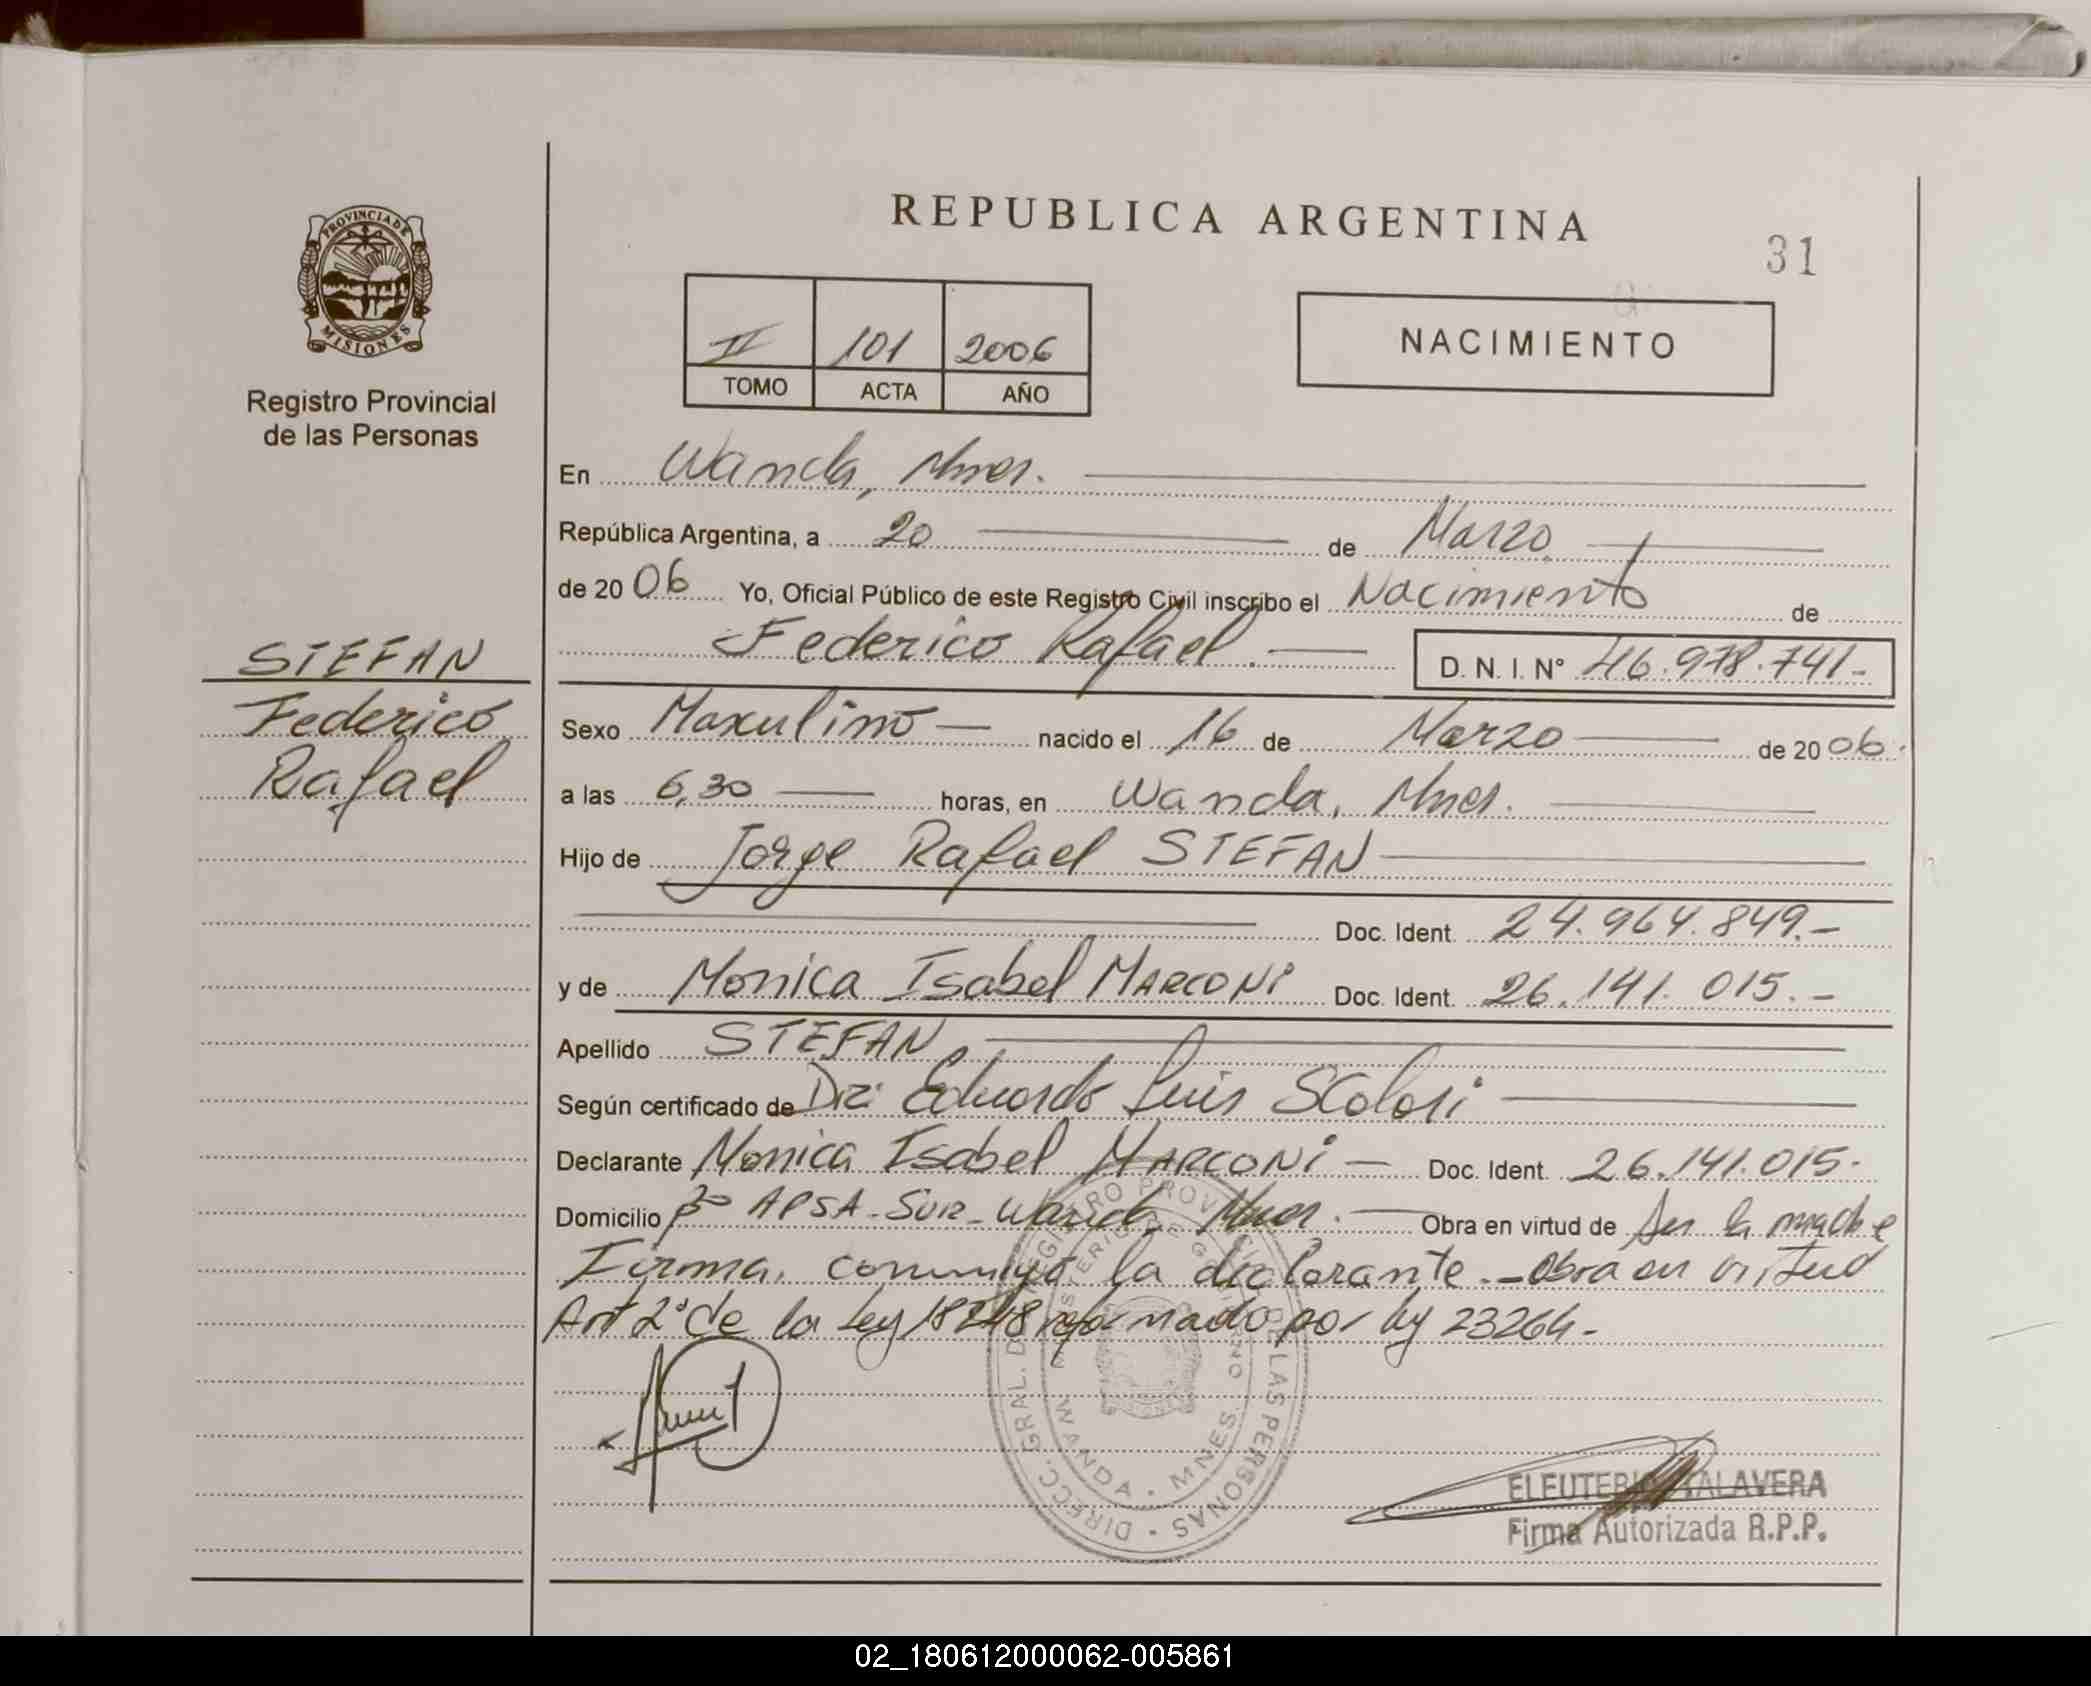 REPUBLICA ARGENTINA
31
PROVINCIA DE MISIONES
Registro Provincial
de las Personas
II 101 2006
TOMO ACTA AÑO
NACIMIENTO
En Wanda, Mnes.
República Argentina, a 20 de Marzo
de 20 06 Yo, Oficial Público de este Registro Civil inscribo el Nacimiento de
Federico Rafael. D. N. I. N° 46.978.741.-
STEFAN
Federico
Rafael
Sexo Masculino nacido el 16 de Marzo de 20 06.
a las 6,30 horas, en Wanda, Mnes.
Hijo de Jorge Rafael STEFAN
Doc. Ident. 24.964.849.-
y de Monica Isabel MARCONi Doc. Ident. 26.141.015.-
Apellido STEFAN
Según certificado de Dr: Eduardo Luis Scolari
Declarante Monica Isabel MARCONi - Doc. Ident. 26.141.015.
Domicilio APSA-Sur-Wanda Mnes. Obra en virtud de Ser la madre
Firma, conmigo la declarante.-Obra en virtud
Art 2° de la Ley 18248 reformado por ley 23264-
DIRECC. GRAL. DEL REGISTRO PROVINCIAL DE LAS PERSONAS
MINISTERIO DE GOBIERNO
MISIONES
WANDA - MNES.
ELEUTERIO TALAVERA
Firma Autorizada R.P.P.
02_180612000062-005861